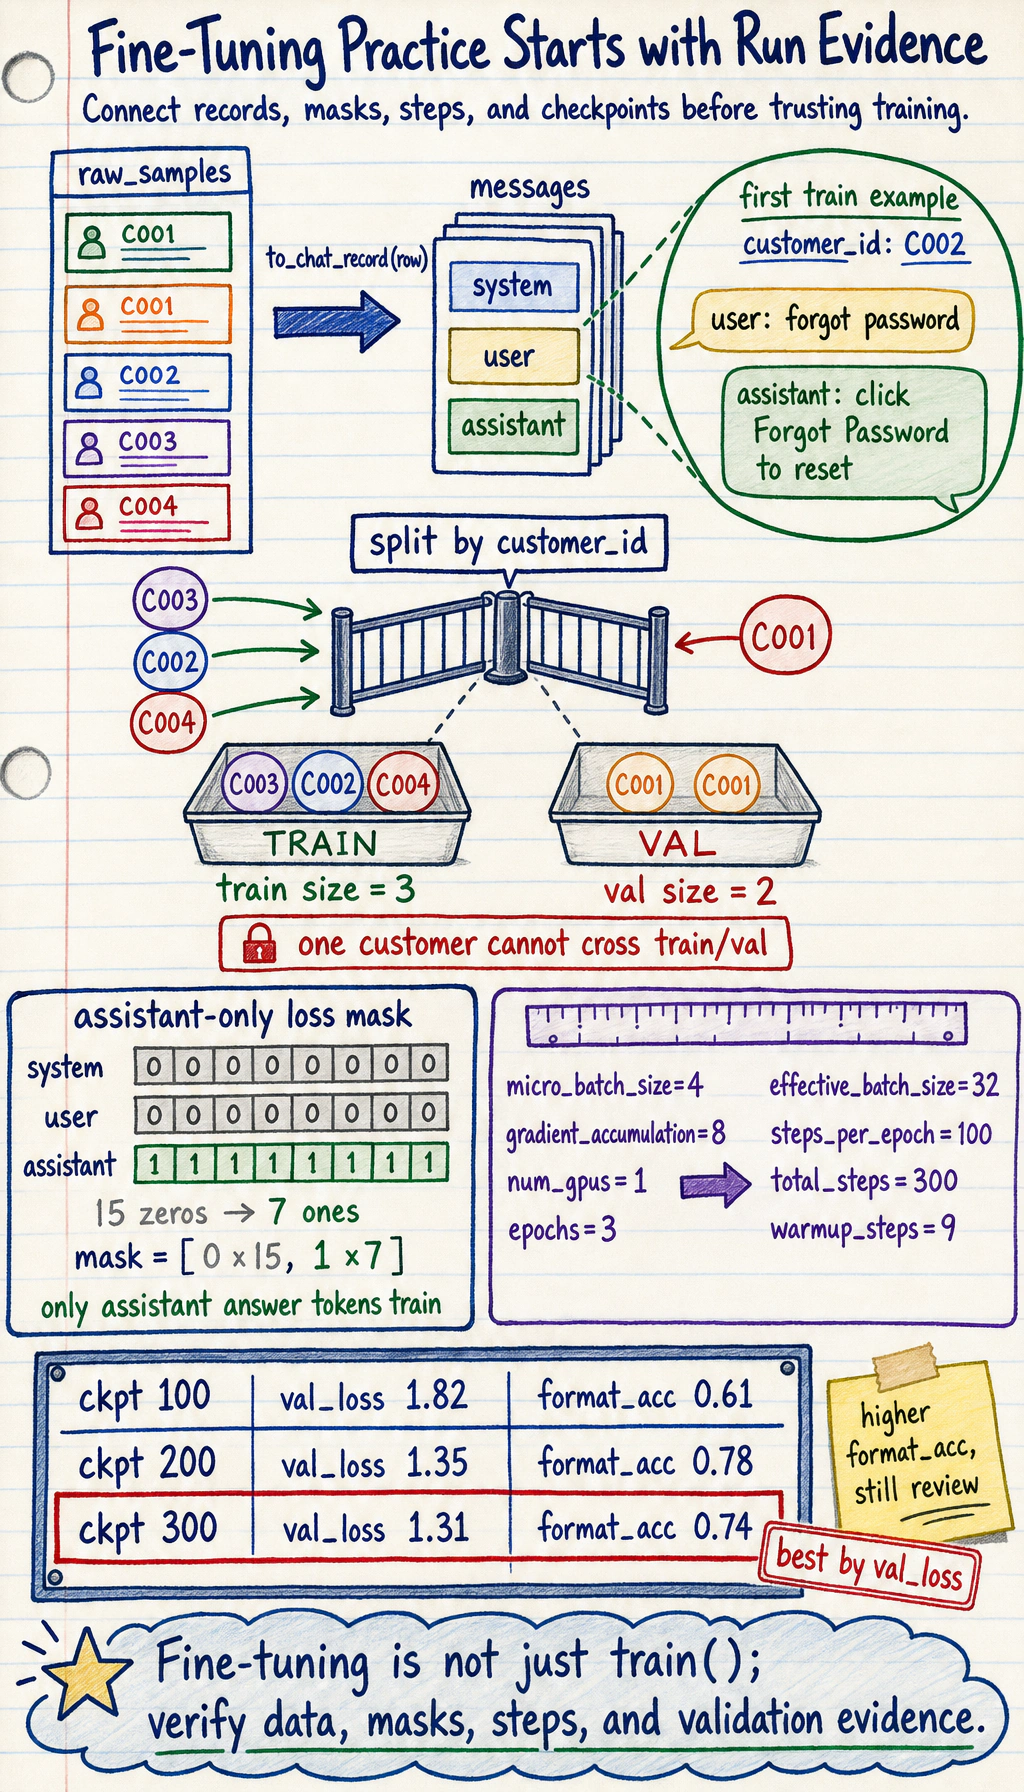 Fine-Tuning Practice Starts with Run Evidence
Connect records, masks, steps, and checkpoints before trusting training.
raw_samples
C001
C001
C002
C003
C004
to_chat_record(row)
messages
system
user
assistant
first train example
customer_id: C002
user: forgot password
assistant: click
Forgot Password
to reset
split by customer_id
C003
C002
C004
C001
C003 C002 C004
TRAIN
train size = 3
C001 C001
VAL
val size = 2
one customer cannot cross train/val
assistant-only loss mask
system 0 0 0 0 0 0 0 0
user 0 0 0 0 0 0 0 0
assistant 1 1 1 1 1 1 1 1
15 zeros → 7 ones
mask = [ 0 x15, 1 x7 ]
only assistant answer tokens train
micro_batch_size=4
gradient_accumulation=8
num_gpus=1
epochs=3
effective_batch_size=32
steps_per_epoch=100
total_steps=300
warmup_steps=9
ckpt 100 val_loss 1.82 format_acc 0.61
ckpt 200 val_loss 1.35 format_acc 0.78
ckpt 300 val_loss 1.31 format_acc 0.74
higher
format_acc,
still review
best by val_loss
Fine-tuning is not just train();
verify data, masks, steps, and validation evidence.